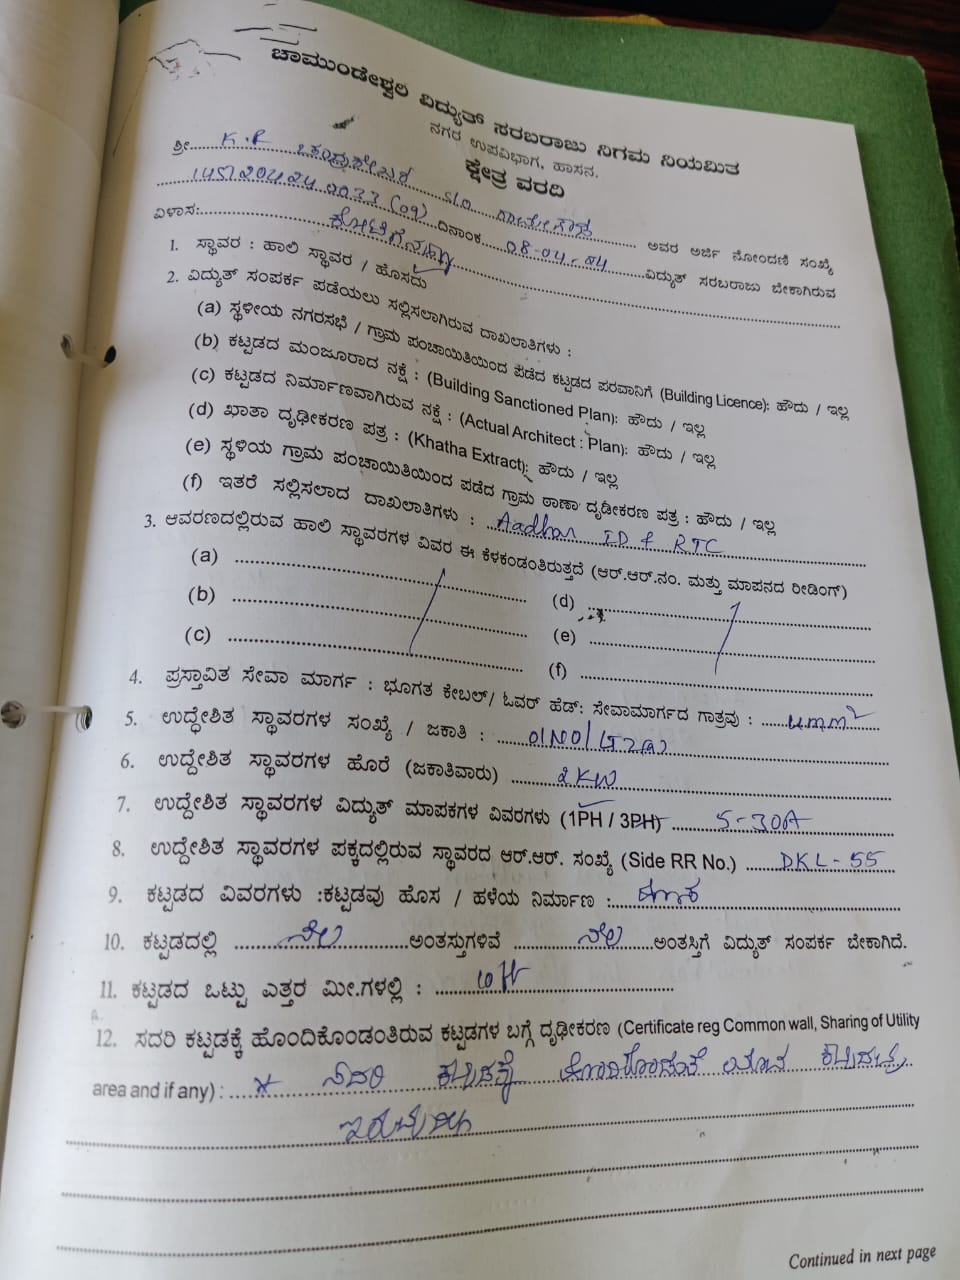 ಚಾಮುಂಡೇಶ್ವರಿ ವಿದ್ಯುತ್ ಸರಬರಾಜು ನಿಗಮ ನಿಯಮಿತ
ನಗರ ಉಪವಿಭಾಗ, ಹಾಸನ.
ಕ್ಷೇತ್ರ ವರದಿ
ಶ್ರೀ K.R ಚಂದ್ರಶೇಖರ S/o ಅವರ ಅರ್ಜಿ ನೋಂದಣಿ ಸಂಖ್ಯೆ
(09) ದಿನಾಂಕ 08-04-24 ವಿದ್ಯುತ್ ಸರಬರಾಜು ಬೇಕಾಗಿರುವ
ವಿಳಾಸ:
1. ಸ್ಥಾವರ : ಹಾಲಿ ಸ್ಥಾವರ / ಹೊಸದು
2. ವಿದ್ಯುತ್ ಸಂಪರ್ಕ ಪಡೆಯಲು ಸಲ್ಲಿಸಲಾಗಿರುವ ದಾಖಲಾತಿಗಳು :
(a) ಸ್ಥಳೀಯ ನಗರಸಭೆ / ಗ್ರಾಮ ಪಂಚಾಯಿತಿಯಿಂದ ಪಡೆದ ಕಟ್ಟಡದ ಪರವಾನಿಗೆ (Building Licence): ಹೌದು / ಇಲ್ಲ
(b) ಕಟ್ಟಡದ ಮಂಜೂರಾದ ನಕ್ಷೆ : (Building Sanctioned Plan): ಹೌದು / ಇಲ್ಲ
(c) ಕಟ್ಟಡದ ನಿರ್ಮಾಣವಾಗಿರುವ ನಕ್ಷೆ : (Actual Architect : Plan): ಹೌದು / ಇಲ್ಲ
(d) ಖಾತಾ ದೃಢೀಕರಣ ಪತ್ರ : (Khatha Extract): ಹೌದು / ಇಲ್ಲ
(e) ಸ್ಥಳಿಯ ಗ್ರಾಮ ಪಂಚಾಯಿತಿಯಿಂದ ಪಡೆದ ಗ್ರಾಮ ಠಾಣಾ ದೃಢೀಕರಣ ಪತ್ರ : ಹೌದು / ಇಲ್ಲ
(f) ಇತರೆ ಸಲ್ಲಿಸಲಾದ ದಾಖಲಾತಿಗಳು : Aadhar ID & RTC
3. ಆವರಣದಲ್ಲಿರುವ ಹಾಲಿ ಸ್ಥಾವರಗಳ ವಿವರ ಈ ಕೆಳಕಂಡಂತಿರುತ್ತದೆ (ಆರ್.ಆರ್.ನಂ. ಮತ್ತು ಮಾಪನದ ರೀಡಿಂಗ್)
(a) (d)
(b) (e)
(c) (f)
4. ಪ್ರಸ್ತಾವಿತ ಸೇವಾ ಮಾರ್ಗ : ಭೂಗತ ಕೇಬಲ್/ ಓವರ್ ಹೆಡ್: ಸೇವಾಮಾರ್ಗದ ಗಾತ್ರವು :
5. ಉದ್ಧೇಶಿತ ಸ್ಥಾವರಗಳ ಸಂಖ್ಯೆ / ಜಕಾತಿ :
6. ಉದ್ದೇಶಿತ ಸ್ಥಾವರಗಳ ಹೊರೆ (ಜಕಾತಿವಾರು) 2KW
7. ಉದ್ದೇಶಿತ ಸ್ಥಾವರಗಳ ವಿದ್ಯುತ್ ಮಾಪಕಗಳ ವಿವರಗಳು (1PH / 3PH) 5-30A
8. ಉದ್ದೇಶಿತ ಸ್ಥಾವರಗಳ ಪಕ್ಕದಲ್ಲಿರುವ ಸ್ಥಾವರದ ಆರ್.ಆರ್. ಸಂಖ್ಯೆ (Side RR No.) DKL-55
9. ಕಟ್ಟಡದ ವಿವರಗಳು :ಕಟ್ಟಡವು ಹೊಸ / ಹಳೆಯ ನಿರ್ಮಾಣ :
10. ಕಟ್ಟಡದಲ್ಲಿ ನೆಲ ಅಂತಸ್ತುಗಳಿವೆ ನೆಲ ಅಂತಸ್ತಿಗೆ ವಿದ್ಯುತ್ ಸಂಪರ್ಕ ಬೇಕಾಗಿದೆ.
11. ಕಟ್ಟಡದ ಒಟ್ಟು ಎತ್ತರ ಮೀ.ಗಳಲ್ಲಿ : 10ft
12. ಸದರಿ ಕಟ್ಟಡಕ್ಕೆ ಹೊಂದಿಕೊಂಡಂತಿರುವ ಕಟ್ಟಡಗಳ ಬಗ್ಗೆ ದೃಢೀಕರಣ (Certificate reg Common wall, Sharing of Utility
area and if any) : * ಸದರಿ ಕಟ್ಟಡಕ್ಕೆ ಹೊಂದಿಕೊಂಡಂತೆ ಯಾವ ಕಟ್ಟಡವೂ
ಇರುವುದಿಲ್ಲ
Continued in next page